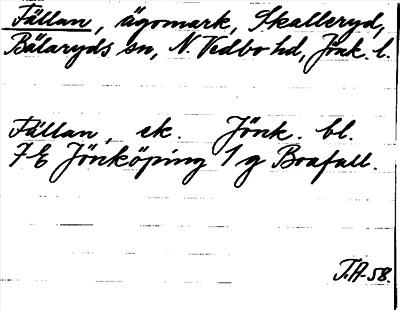 Fällan, ägomark, Skalleryd,
Bälaryds sn, N. Vedbo hd, Jönk. l.
Fällan, ek. Jönk. bl.
7E Jönköping 1g Boafall.
T.A-58.